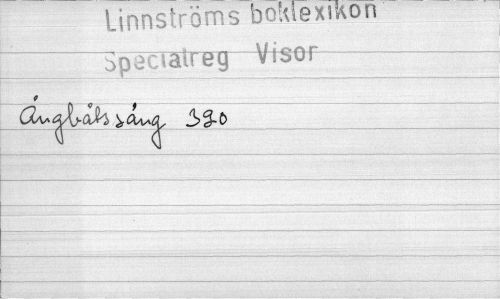 Linnströms boklexikon
Specialreg Visor
Ångbåtssång 390